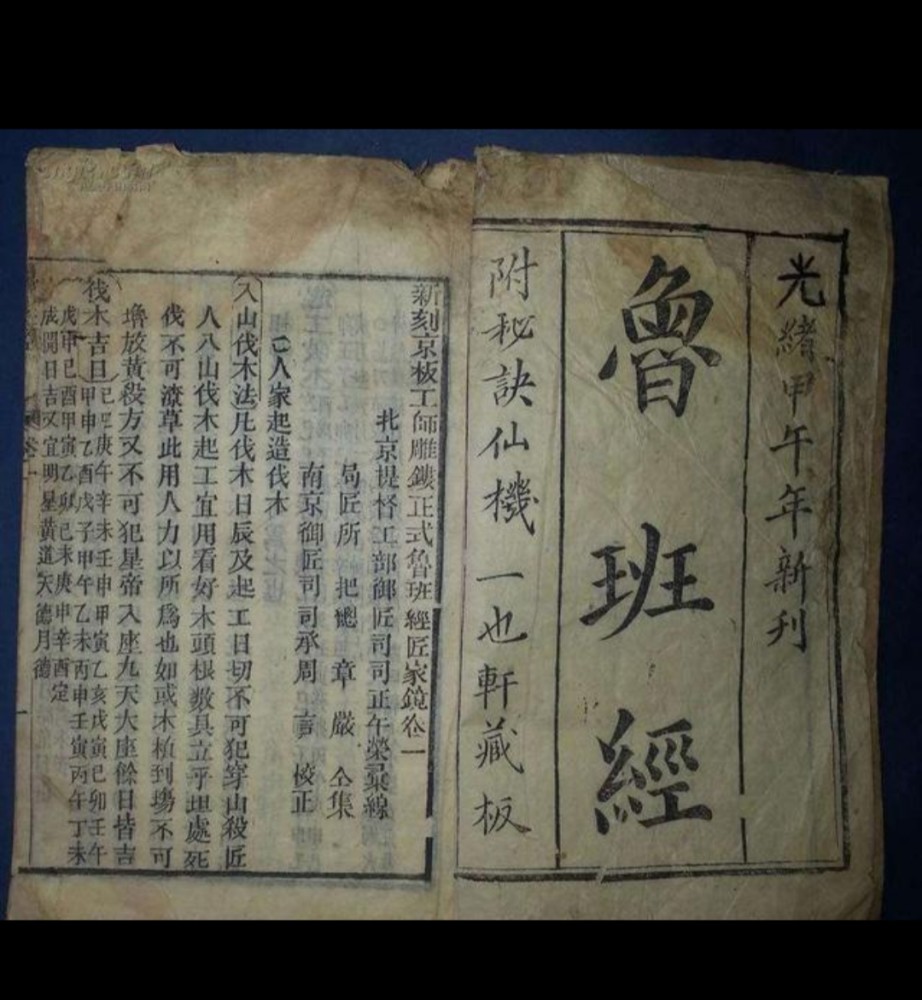 光緒甲午年新刊
魯班經
附秘訣仙機一也軒藏板
新刻京板工師雕鏤正式魯班經匠家鏡卷一
北京提督工部御匠司司正午榮彙線
局匠所把總章嚴仝集
南京御匠司司承周言校正
人家起造伐木
入山伐木法凡伐木日辰及起工日切不可犯穿山殺匠
人入山伐木起工宜用看好木頭根数具立平坦處死
伐不可潦草此用人力以所爲也如或木植到塲不可
堆放黃殺方又不可犯星帝入座九天大座餘日皆吉
伐木吉日己巳庚午辛未壬申甲寅乙亥戊寅己卯壬午
甲申乙酉戊子甲午乙未丙申壬寅丙午丁未
戊申己酉甲寅乙卯己未庚申辛酉定
成開日吉又宜明星黃道天德月德